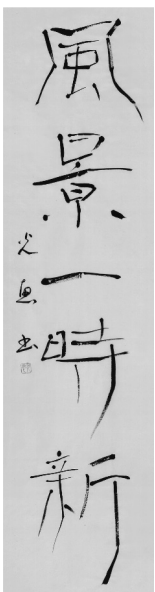 風景一時新
光恵書